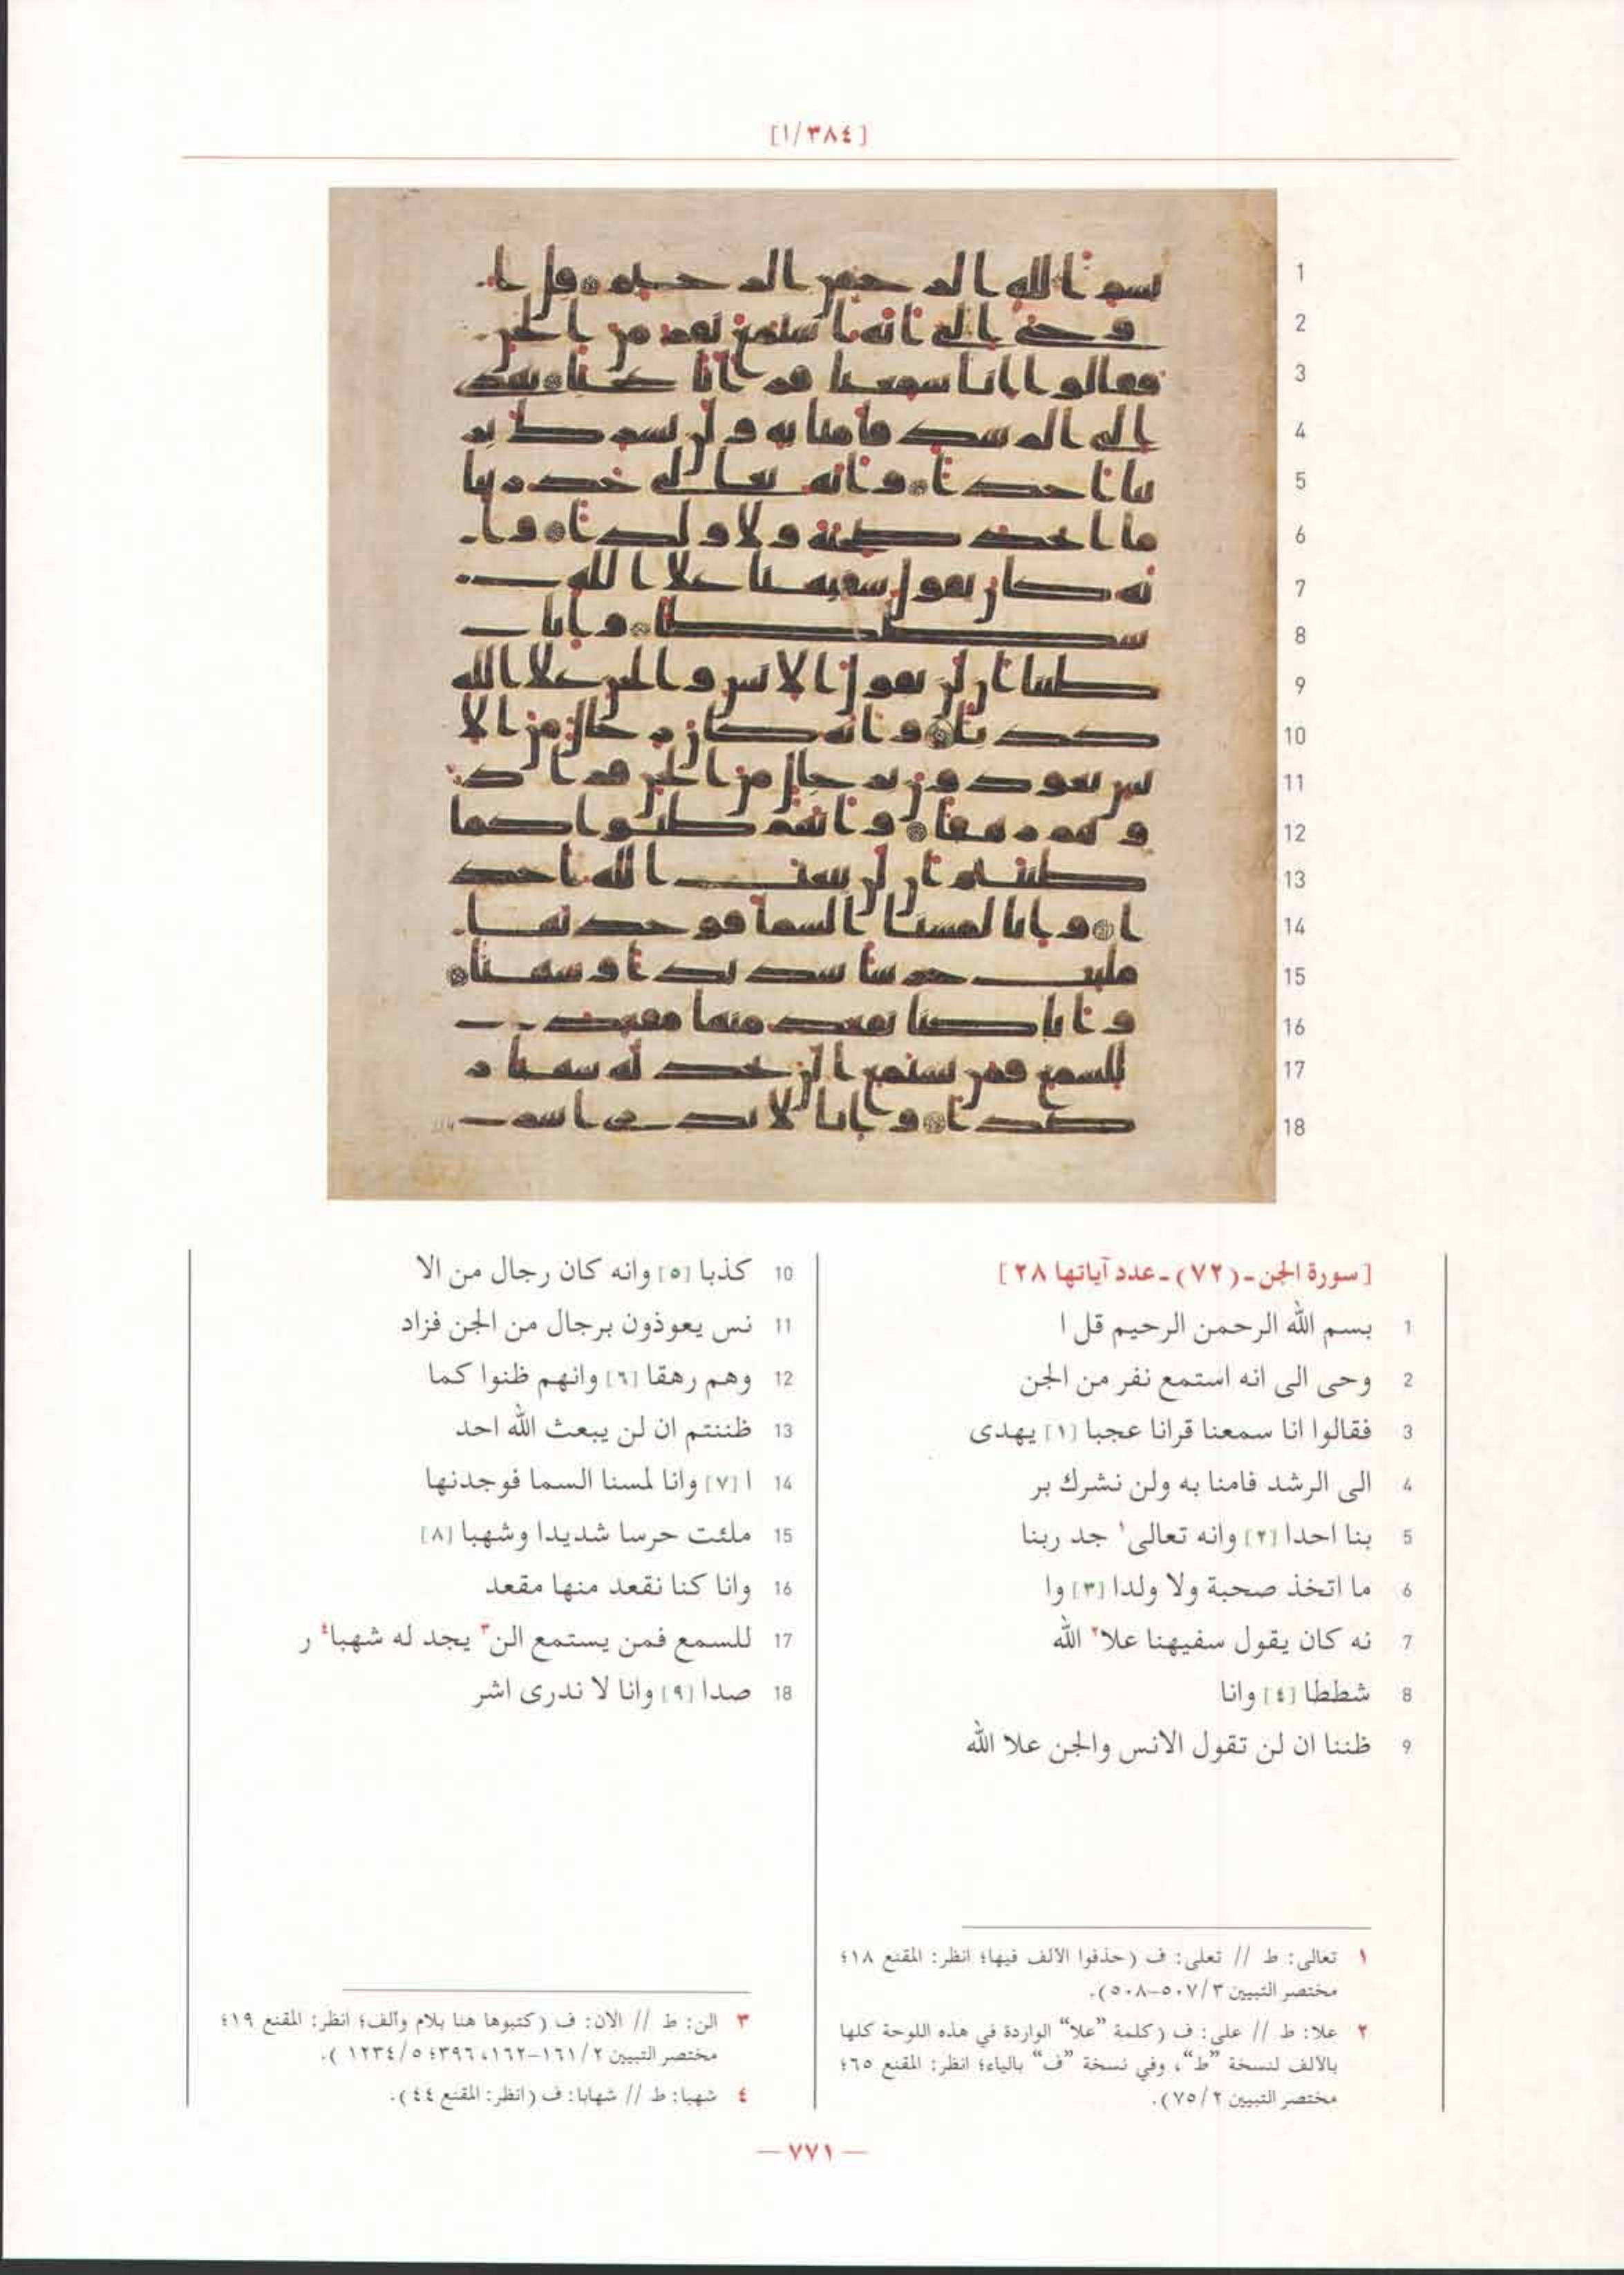 [٣٨٤/١]
1
2
3
4
5
6
7
8
9
10
11
12
13
14
15
16
17
18
[سورة الجن-(٧٢)-عدد آياتها ٢٨]
1 بسم الله الرحمن الرحيم قل ا
2 وحى الى انه استمع نفر من الجن
3 فقالوا انا سمعنا قرانا عجبا [١] يهدى
4 الى الرشد فامنا به ولن نشرك بر
5 بنا احدا [٢] وانه تعالى١ جد ربنا
6 ما اتخذ صحبة ولا ولدا [٣] وا
7 نه كان يقول سفيهنا علا٢ الله
8 شططا [٤] وانا
9 ظننا ان لن تقول الانس والجن علا الله
10 كذبا [٥] وانه كان رجال من الا
11 نس يعوذون برجال من الجن فزاد
12 وهم رهقا [٦] وانهم ظنوا كما
13 ظننتم ان لن يبعث الله احد
14 ا [٧] وانا لمسنا السما فوجدنها
15 ملئت حرسا شديدا وشهبا [٨]
16 وانا كنا نقعد منها مقعد
17 للسمع فمن يستمع الن٣ يجد له شهبا٤ ر
18 صدا [٩] وانا لا ندرى اشر
١ تعالى: ط // تعلى: ف (حذفوا الالف فيها؛ انظر: المقنع ١٨؛
مختصر التبيين ٥٠٧/٣-٥٠٨).
٢ علا: ط // على: ف (كلمة "علا" الواردة في هذه اللوحة كلها
بالألف لنسخة "ط"، وفي نسخة "ف" بالياء؛ انظر: المقنع ٦٥؛
مختصر التبيين ٧٥/٢).
٣ الن: ط // الان: ف (كتبوها هنا بلام وألف؛ انظر: المقنع ١٩؛
مختصر التبيين ١٦١/٢-١٦٢، ٣٩٦؛ ١٢٣٤/٥).
٤ شهبا: ط // شهابا: ف (انظر: المقنع ٤٤).
— ٧٧١ —